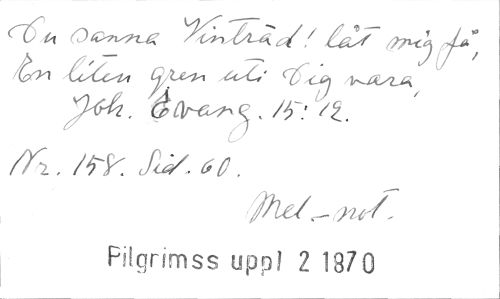 Du sanna Vinträd! låt mig få,
En liten gren uti Dig vara,
Joh. Evang. 15:12.
Nr. 158. Sid. 60.
Mel-not.
Pilgrimss uppl 2 1870